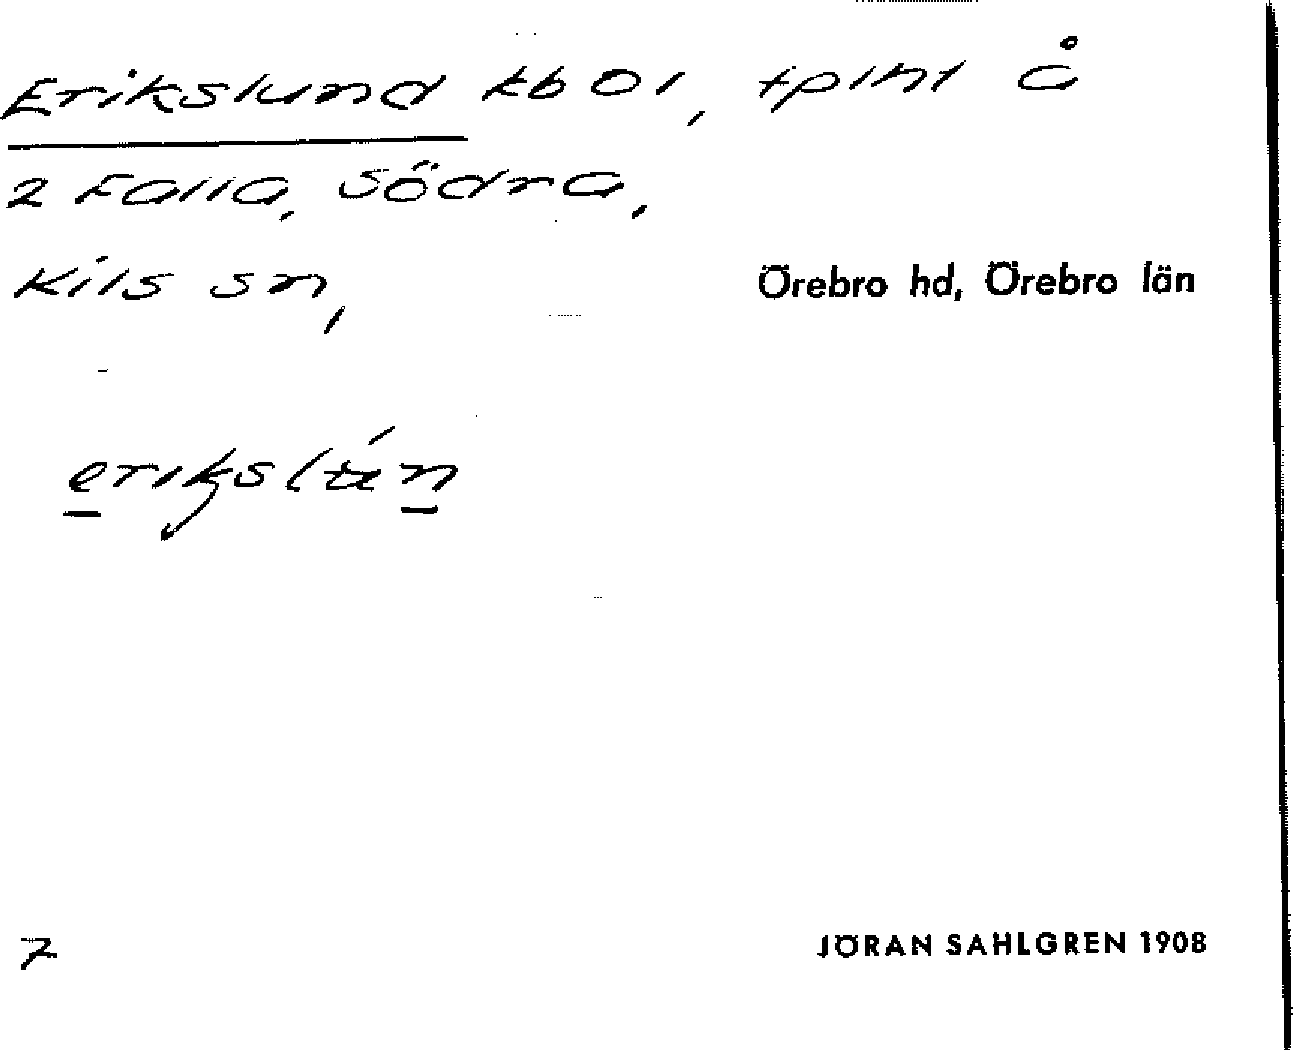 Erikslund kbol, tplht å
2 Falla, Södra,
Kils sn, Örebro hd, Örebro län
7
JÖRAN SAHLGREN 1908